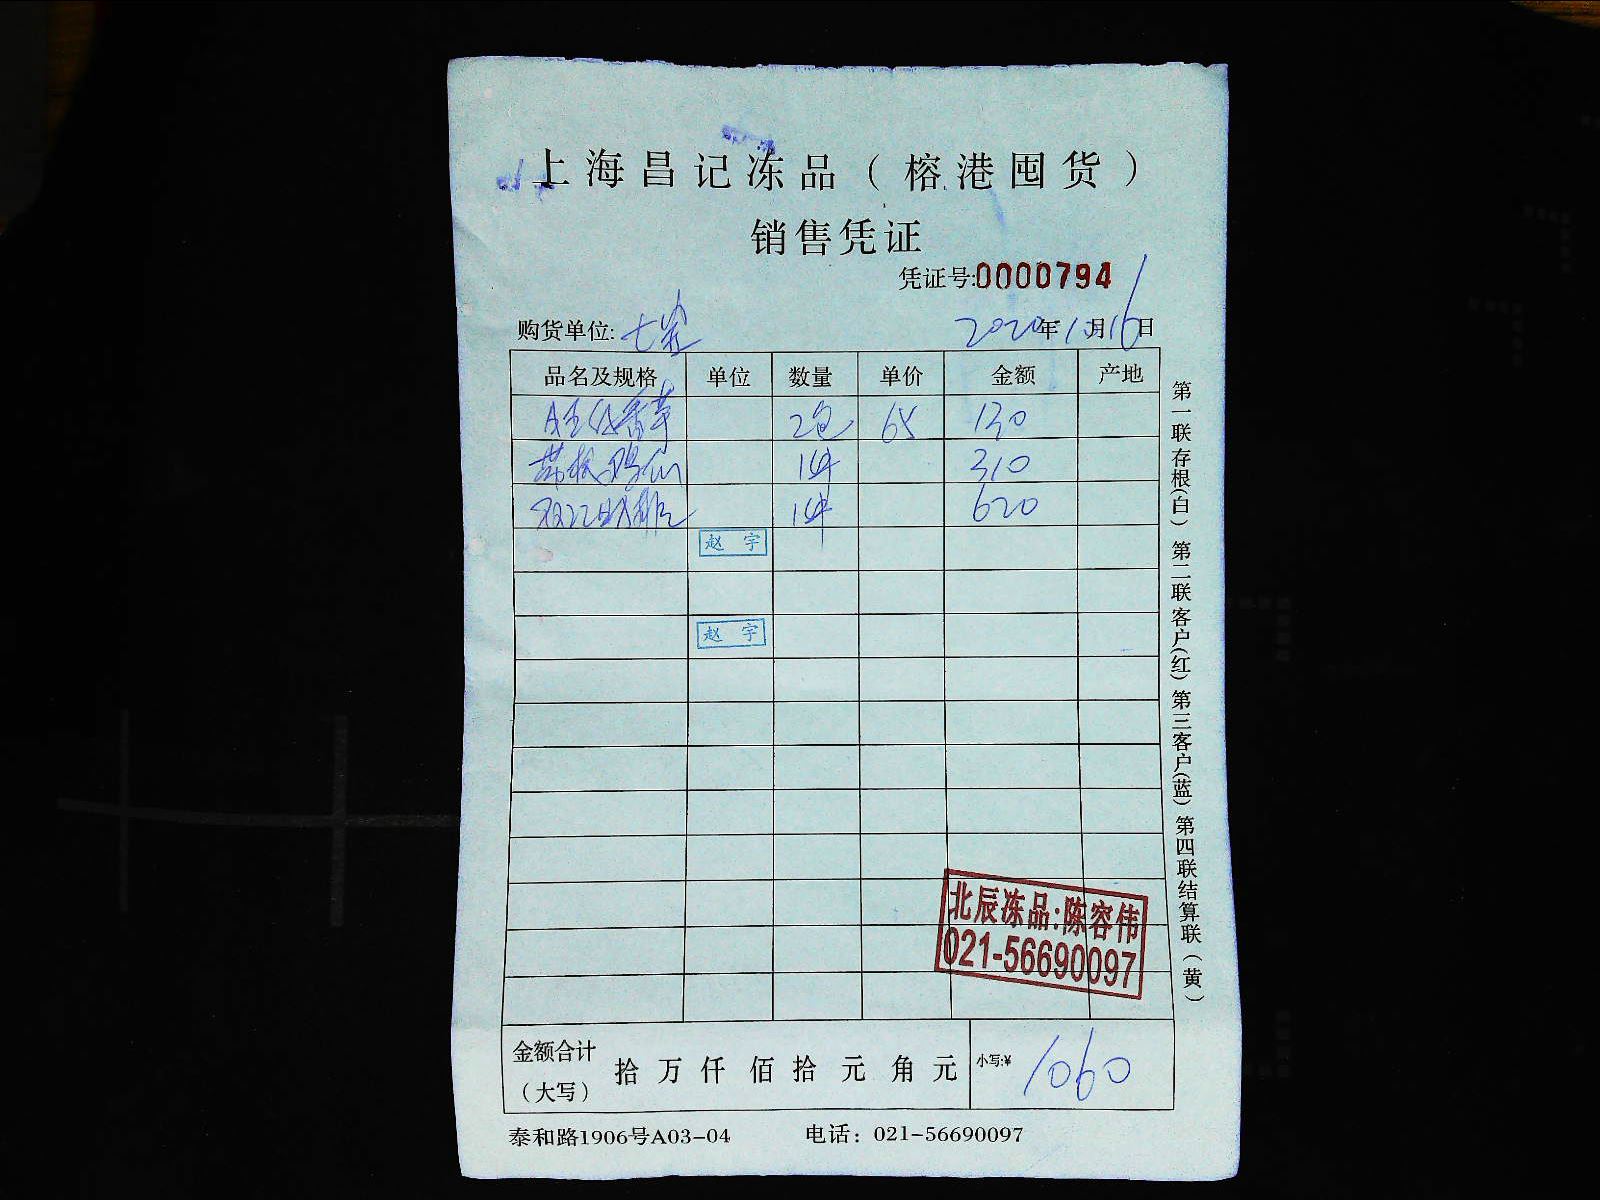 上海昌记冻品（榕港囤货）
销售凭证
凭证号:0000794
购货单位:七
2020年10月16日
品名及规格 单位 数量 单价 金额 产地
2包 65 130
1件 310
1件 620
赵 宇
赵 宇
北辰冻品:陈容伟
021-56690097
金额合计（大写） 拾 万 仟 佰 拾 元 角 元 小写:¥ 1060
泰和路1906号A03-04 电话：021-56690097
第一联存根(白) 第二联客户(红) 第三客户(蓝) 第四联结算联(黄)